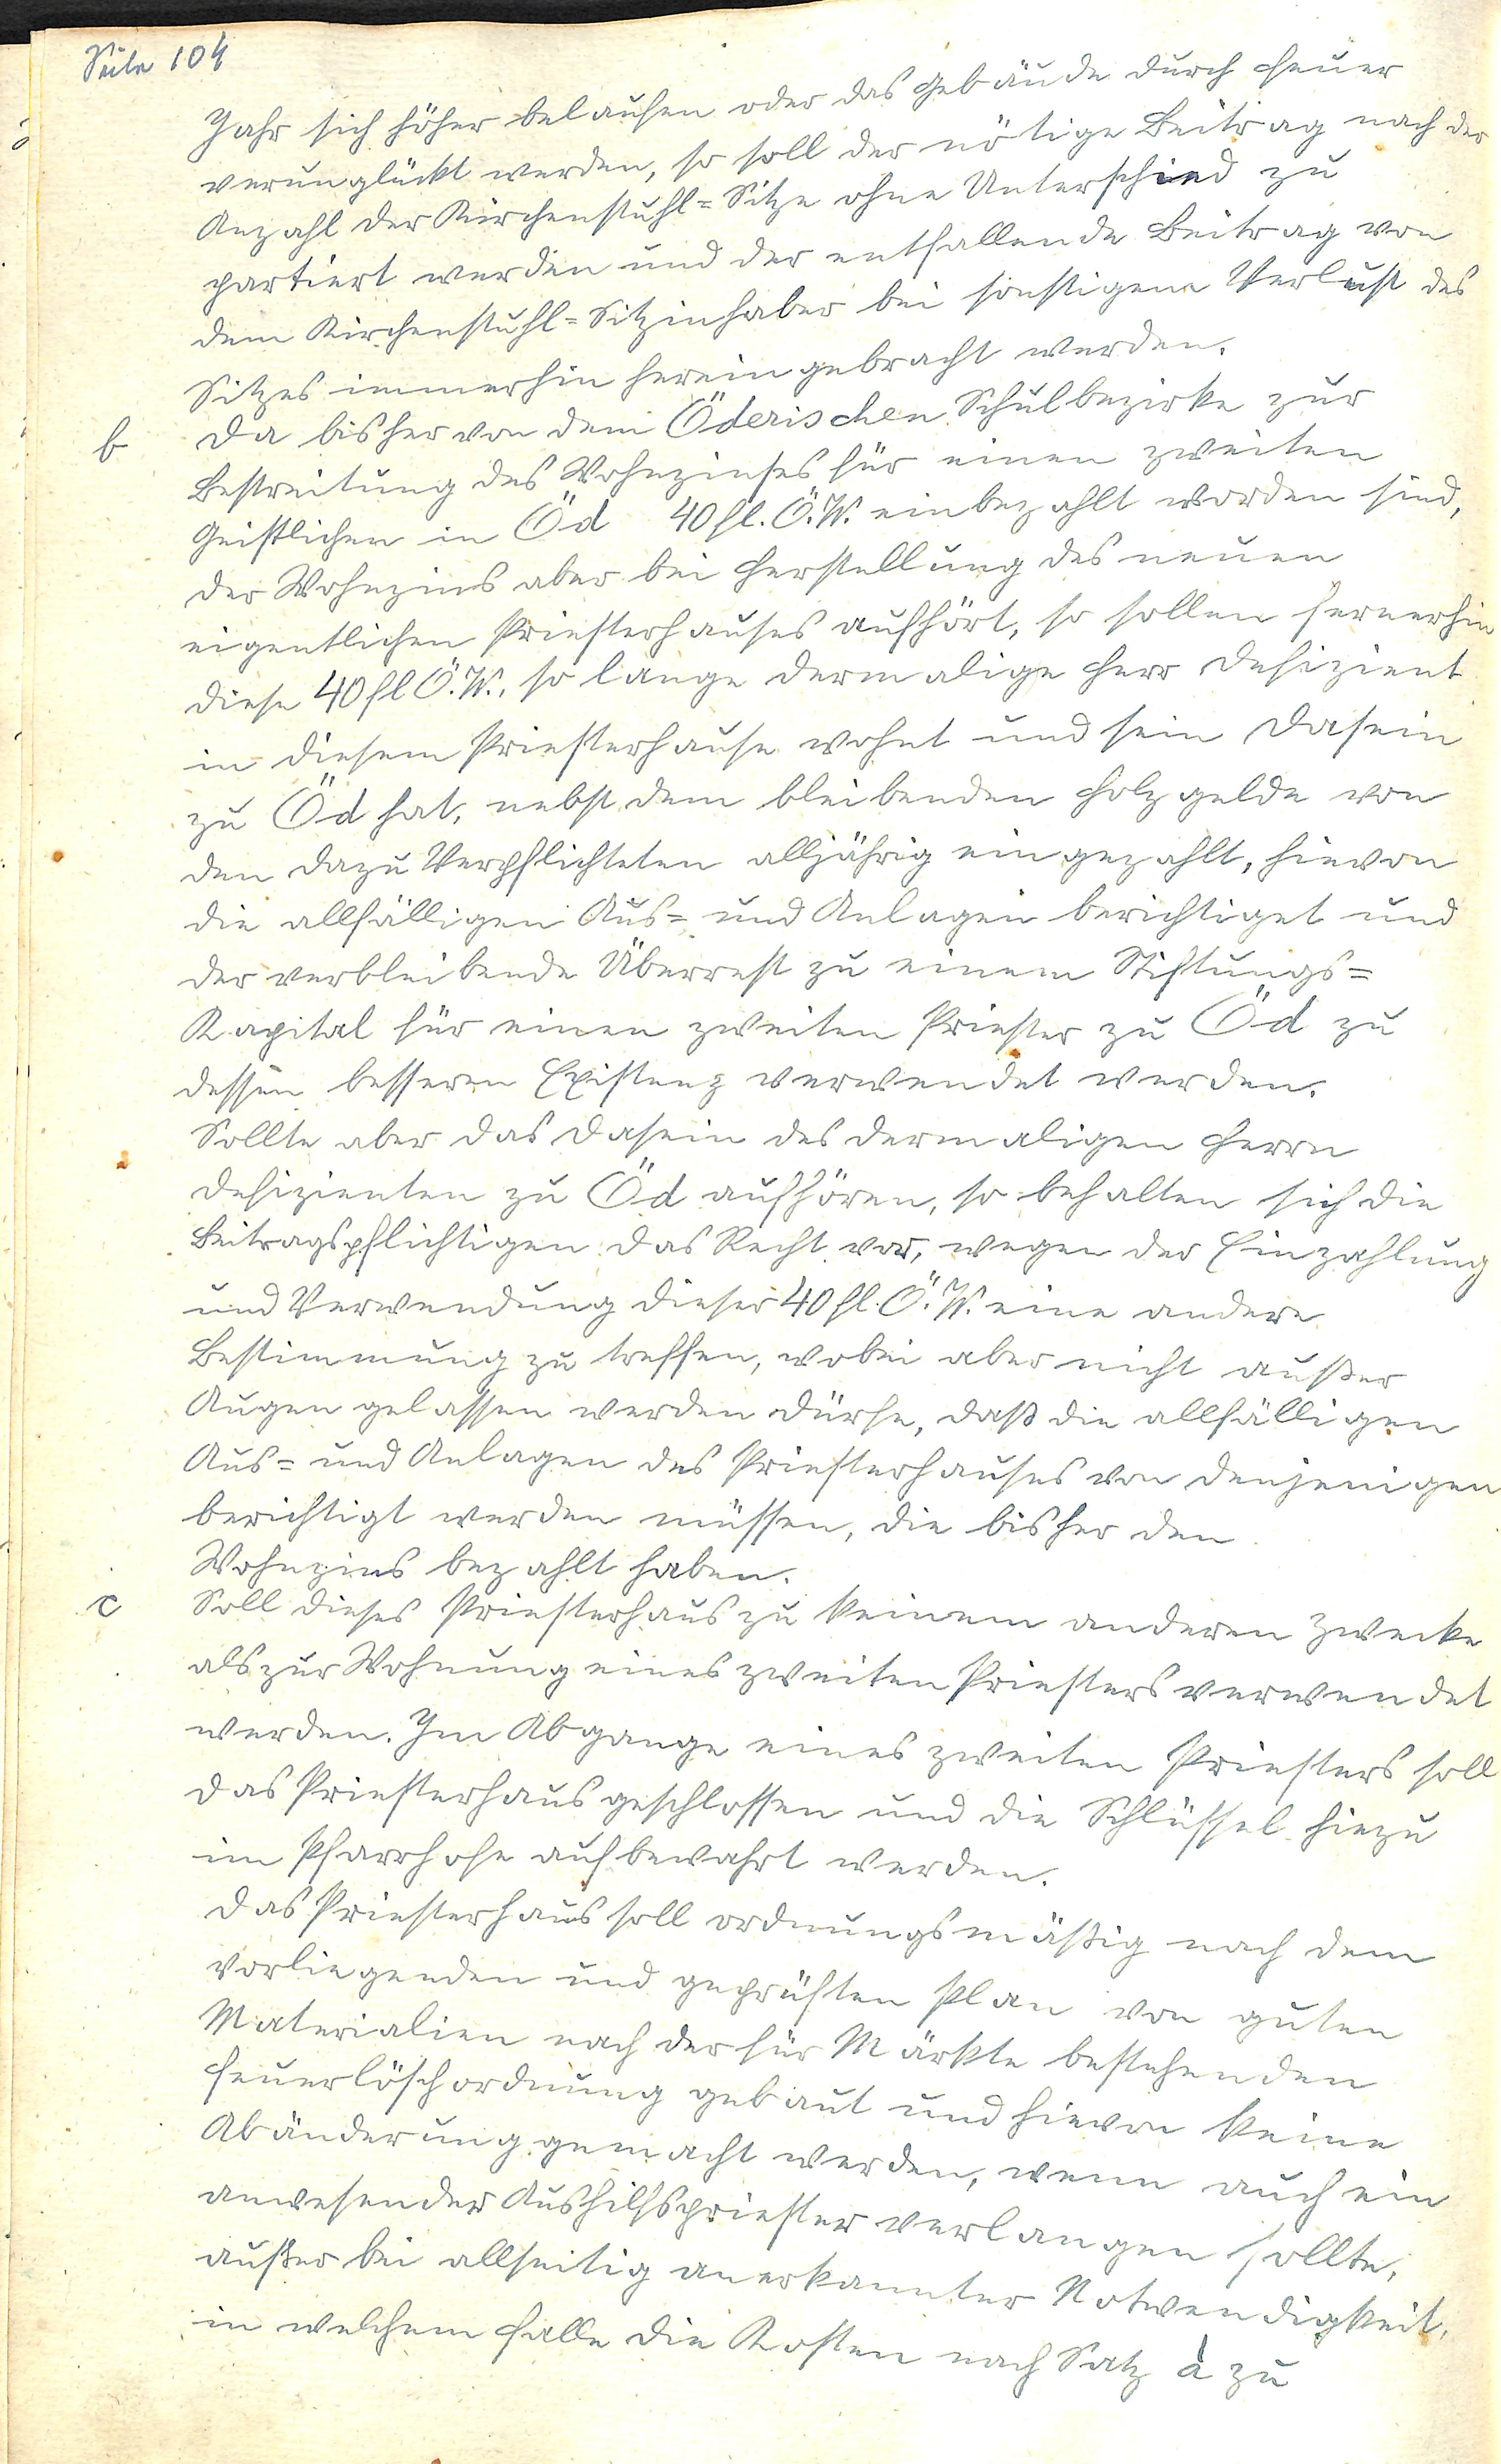 Seite 104
Jahr sich höher belaufen oder das Gebäude durch Feuer
verunglückt werden, so soll der nötige Beitrag nach der
Anzahl der Kirchenstuhl=Sitze ohne Unterschied zu
partiert werden und der entfallende Beitrag von
dem Kirchenstuhl=Sitzinhaber bei sonstigem Verlust des
Sitzes immerhin hereingebracht werden.
b Da bisher von dem Öderischen Schulbezirke zur
Bestreitung des Wohnzinses für einen zweiten
Geistlichen in Öd 40 fl. Ö.W. einbezahlt worden sind,
der Wohnzins aber bei Herstellung des neuen
eigentlichen Priesterhauses aufhört, so sollen fernerhin
diese 40 fl Ö.W., so lange dermalige Herr Defizient
in diesem Priesterhause wohnt und sein Dasein
zu Öd hat, nebst dem bleibenden Holzgelde von
den dazu Verpflichteten alljährig eingezahlt, hievon
die allfälligen Aus= und Anlagen berichtiget und
der verbleibende Überrest zu einem Stiftungs=
Kapital für einen zweiten Priester zu Öd zu
dessen besseren Existenz verwendet werden.
Sollte aber das Dasein des dermaligen Herrn
Defizienten zu Öd aufhören, so behalten sich die
Beitragspflichtigen das Recht vor, wegen der Einzahlung
und Verwendung dieser 40 fl. Ö.W. eine andere
Bestimmung zu treffen, wobei aber nicht außer
Augen gelassen werden dürfe, daß die allfälligen
Aus= und Anlagen des Priesterhauses von denjenigen
berichtigt werden müssen, die bisher den
Wohnzins bezahlt haben.
c Soll dieses Priesterhaus zu keinem anderen Zwecke
als zur Wohnung eines zweiten Priesters verwendet
werden. Im Abgange eines zweiten Priesters soll
das Priesterhaus geschlossen und die Schlüssel hiezu
im Pfarrhofe aufbewahrt werden.
Das Priesterhaus soll ordnungsmäßig nach dem
vorliegenden und geprüften Plan von guten
Materialien nach der für Märkte bestehenden
Feuerlöschordnung gebaut und hievon keine
Abänderung gemacht werden, wenn auch ein
anwesender Aushilfspriester verlangen sollte,
außer bei allseitig anerkannter Notwendigkeit,
in welchem Falle die Kosten nach Satz à zu